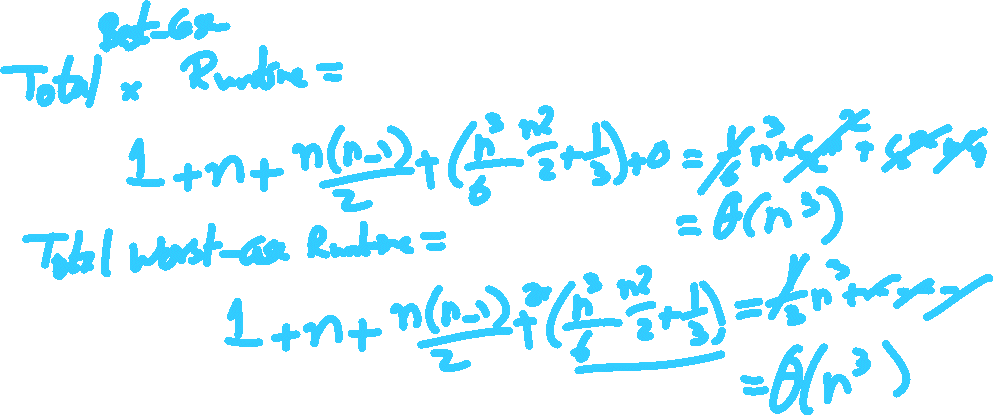 best-case
Total × Runtime =
1 + n + n(n-1)/2 + (n³/6 n²/2 + 1/3) + 0 = 1/6 n³ +
= θ(n³)
Total Worst-case Runtime =
1 + n + n(n-1)/2 + 2×(n³/6 n²/2 + 1/3) = 1/3 n³ +
= θ(n³)